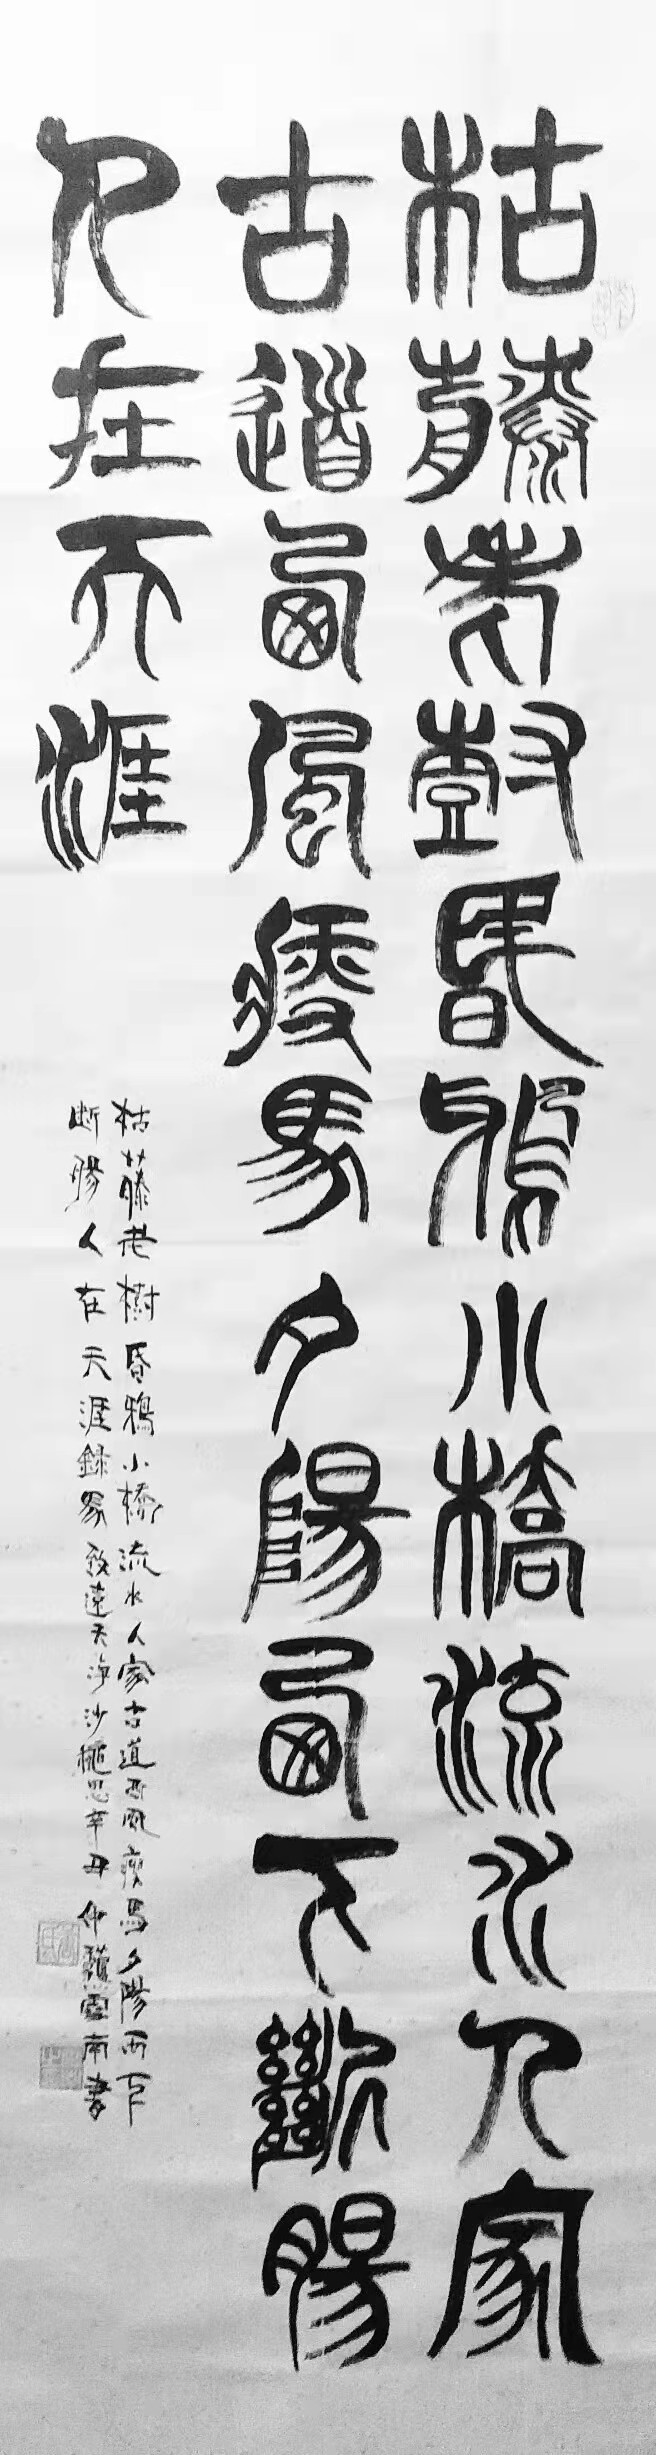 枯藤老樹昏鴉小橋流水人家
古道西風瘦馬夕陽西下斷腸
人在天涯
枯藤老樹昏鴉小橋流水人家古道西風瘦馬夕陽西下
断腸人在天涯錄馬致遠天淨沙秋思辛丑仲龝雲南書